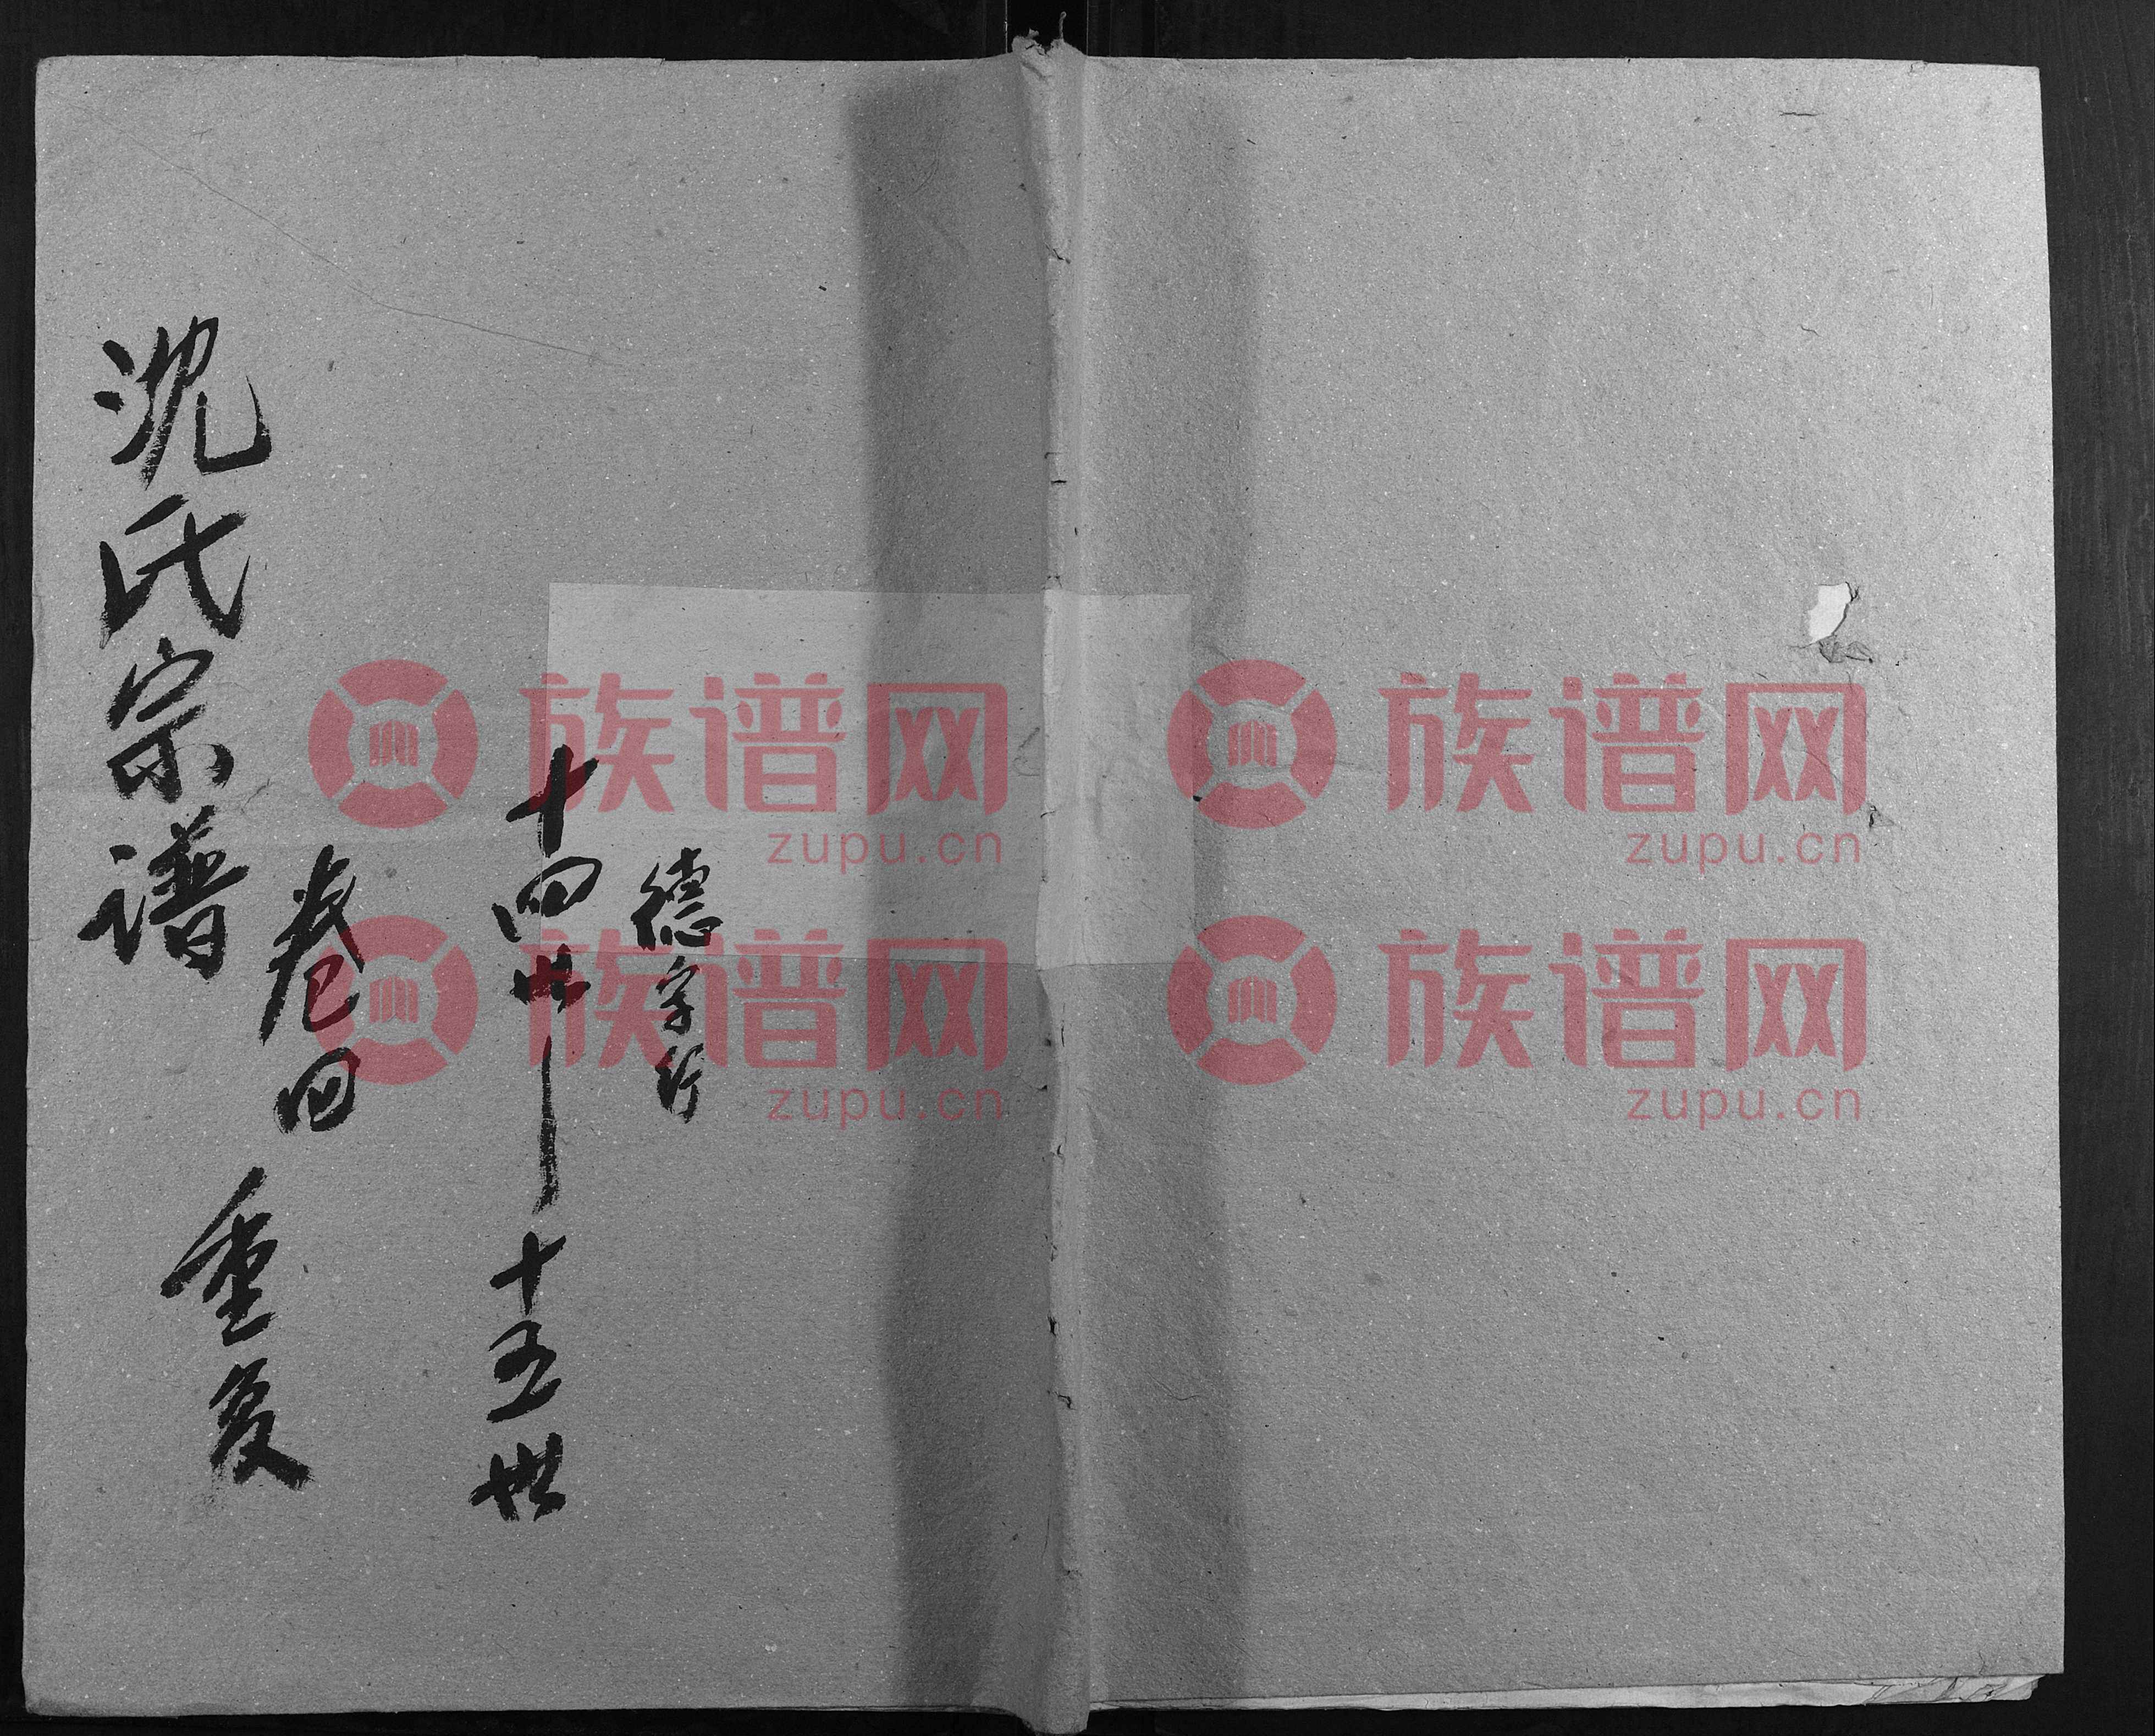 德字行
十四世—十五世
沈氏宗譜
卷四
重复
族谱网
zupu.cn
族谱网
zupu.cn
族谱网
zupu.cn
族谱网
zupu.cn